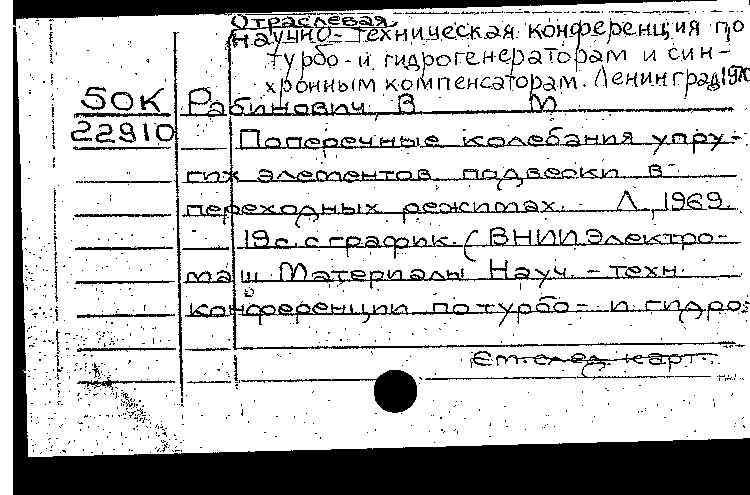 Отраслевая
научно-техническая конференция по
турбо- и гидрогенераторам и син-
хронным компенсаторам. Ленинград 1970
50К Рабинович, В М
22910 Поперечные колебания упру-
гих элементов подвески в
переходных режимах. Л., 1969.
19с. с график. (ВНИИЭлектро-
маш Материалы Науч. - техн.
конференции по турбо- и гидро=
См. след карт.